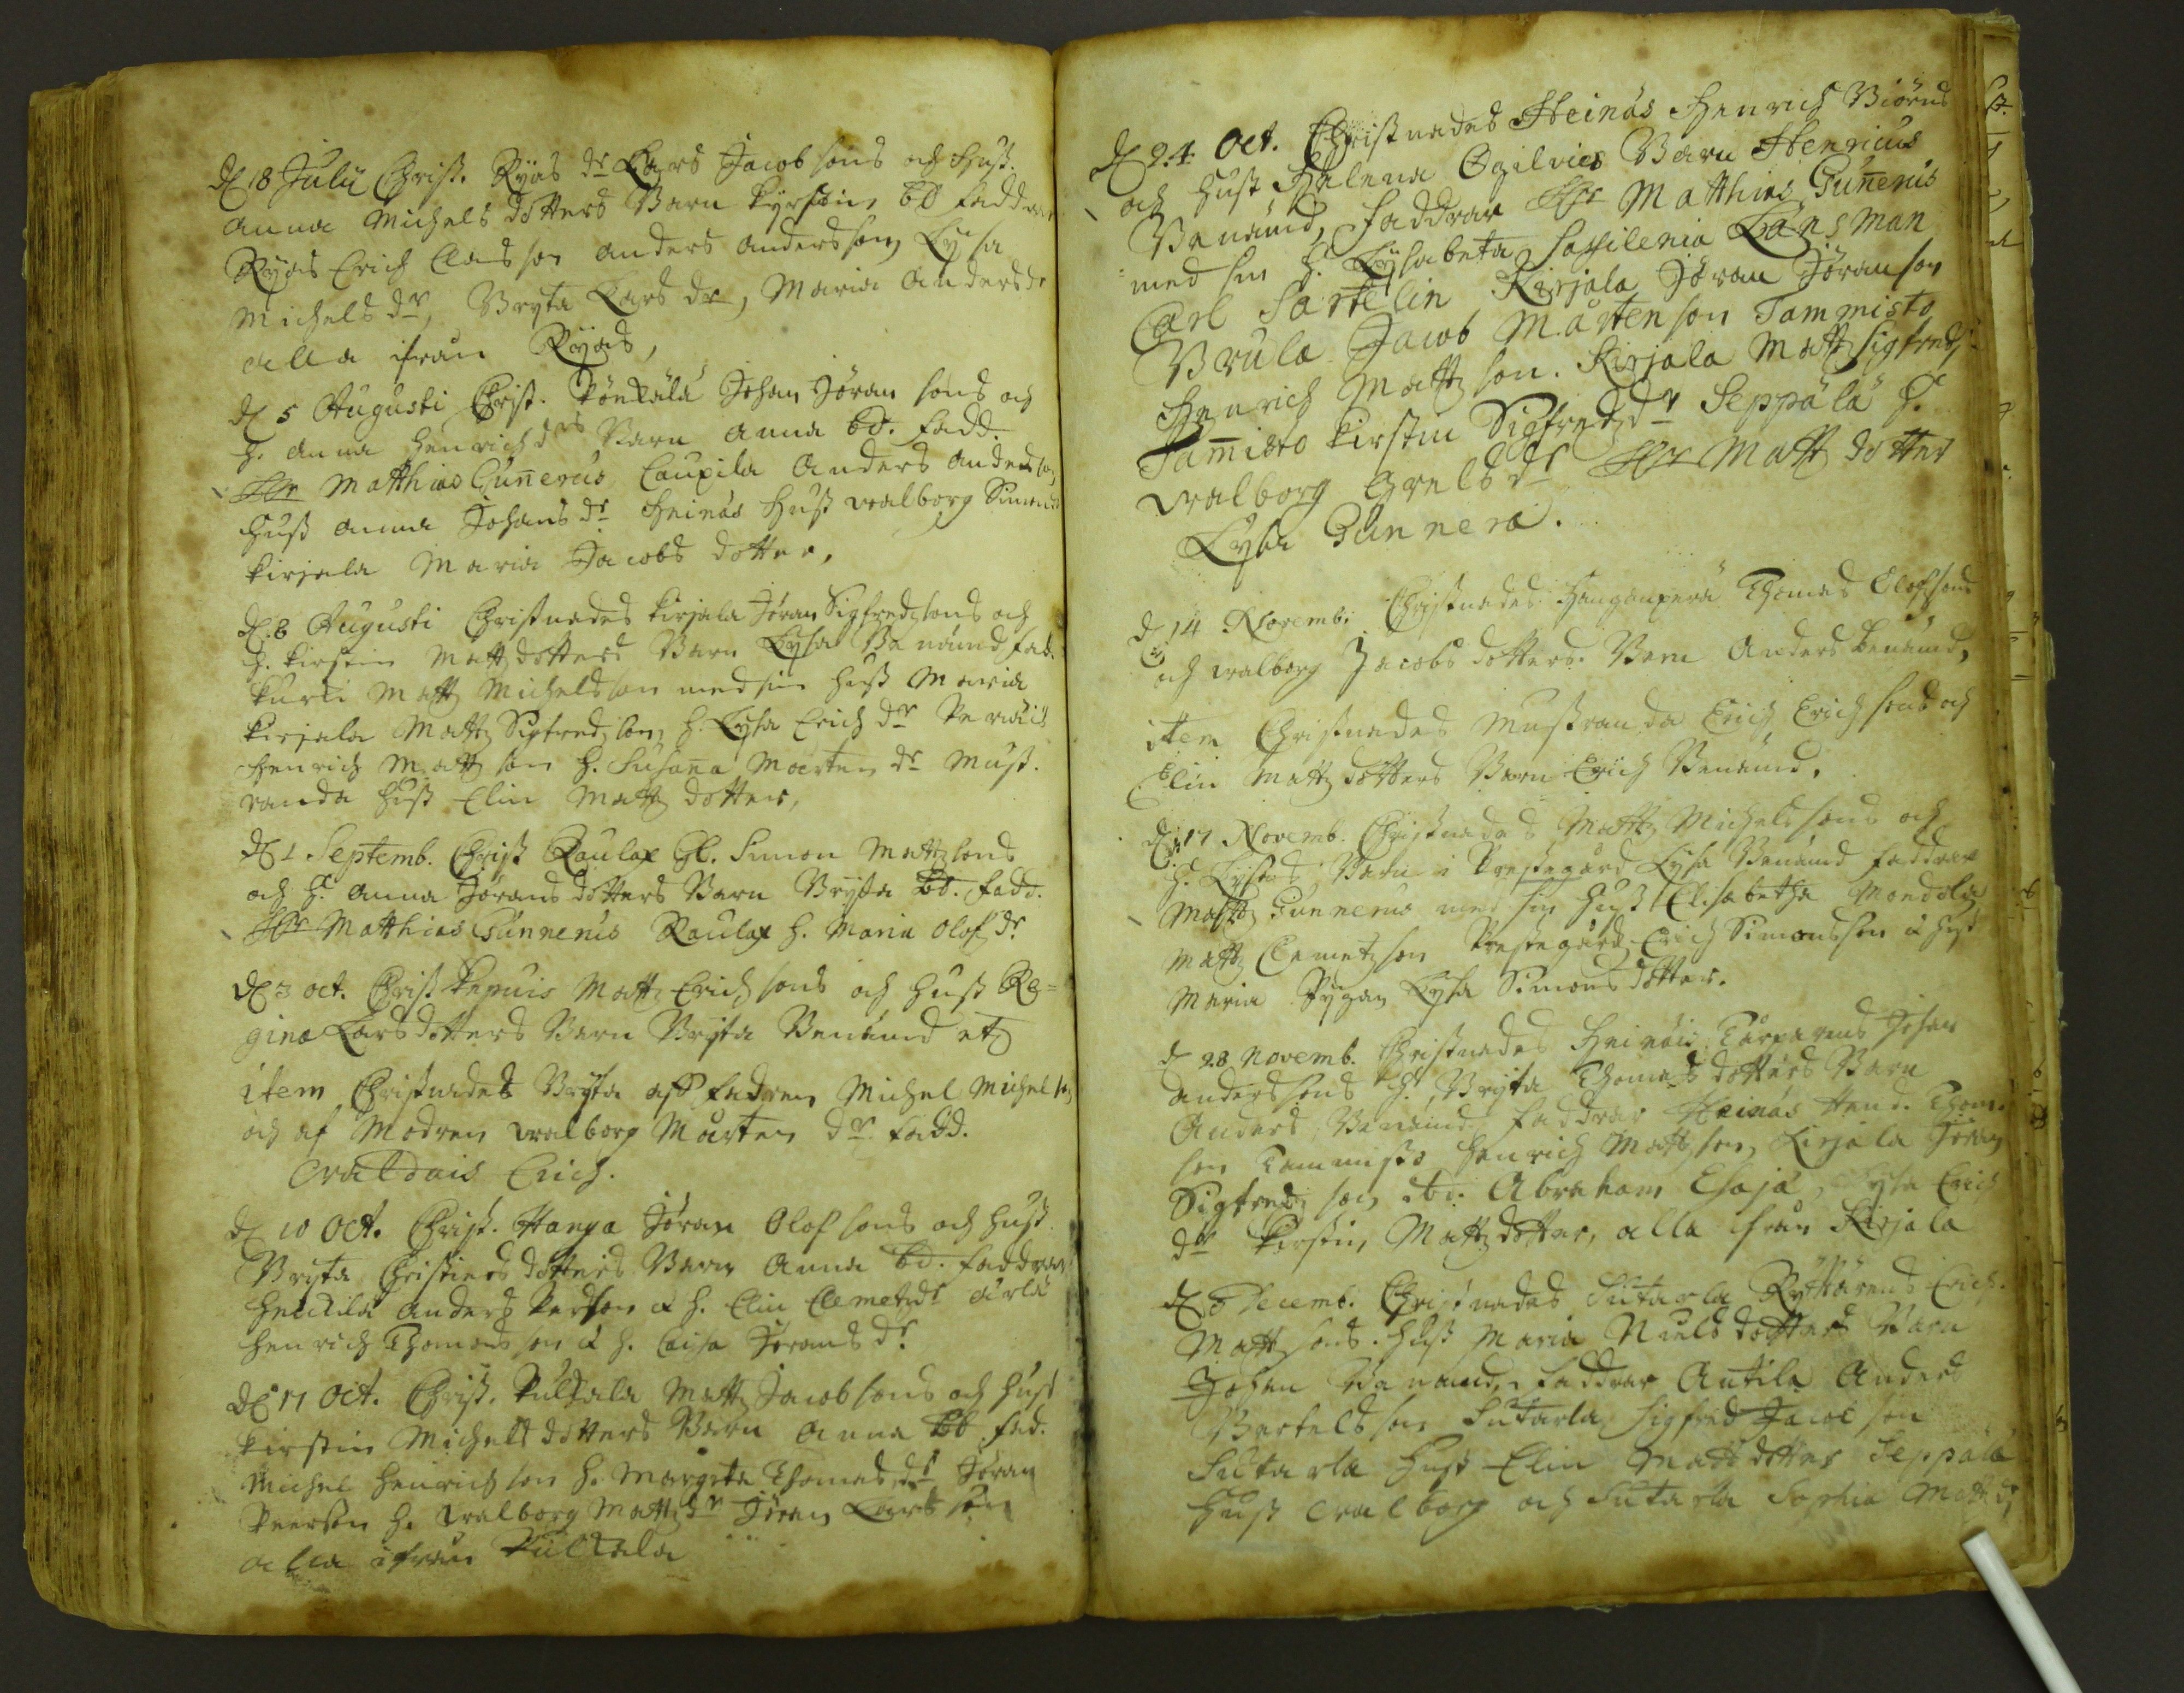 18 Julii Christ. Ryös Lars Jacobsons och Hust.
Anna Michels dotters Barn Kirstin Bd Faddrar
Ryös Erich Classon Anders Andersson Lysa
Michels dr, Bryta Lars dr, Maria Anders dr
alla ifrån Ryös,
d 5 Augusti Christ. Johan Jöransons och
h. Anna Henrichdrs Barn Anna bd. Fadd.
Hr Matthias Gunnerus Caupila Anders Andersson
Hust Anna Johans dr Heinäs Hust Walborg Simons
Kirjala Maria Jacobs dotter,
d. 8 Augusti Christnades Kirjala Jöran Sigfredzsons och
h. Kirstin Mattzdotters Barn Lysa Benämnd Fad.
Kurki Mattz Michelsson med sin Hust Maria
Kirjala Mattz Sigfredzson, h. Lysa Erich dr
Henrich Mattson h. Susanna Mårtens dr Must-
randa Hust Elin Mattz dotter,
d 1 Septemb. Christ Raulax Gl. Simon Mattzsons
och h. Anna Jörans dotters Barn Bryta bd. Fadd.
Hr Matthias Gunnerus Raulax h. Maria Olofz dr
d 3 Oct. Christ Mattz Erichsons och Hust Re=
gina Larsdotters Barn Bryta Benämnd etz
item Christnades Bryta aff Fadren Michel Michelson
och af Modren Walborg Mårtens dr. Fadd.
Erich.
d 10 Oct. Christ. Hanga Jöran Olofsons och Hust
Bryta Christiersdotters Barn Anna bd. Faddrar
Heickilä Anders Person & h. Elin Clemetz dr Ärlä
Henrich Thomasson & h. Caisa Jörans dr
d 17 Oct. Christ. Mattz Jacobsons och Hust
Kirstin Michelsdotters Barn Anna bd. Fad.
Michel Henrichson h. Margeta Thomas dr Jöran
Peerson h. Walborg Mattz dr Jöran Larsson
alla ifrån
d 24 Oct. Christnades Heinäs Henrich Biörns
och Hust Helena Ogilvies Barn Henricus
Benämnd, Faddrar Hr Matthias Gunnerus
med sin h. Lysabeta Länsman
Carl Sartelin Kirjala Jöran Jöranson
Brula Jacob Mårtenson Tammisto
Henrich Mattzson. Kirjala Mattz Sigfredz-
Tammisto Kirstin Sigfredz dr Seppälä h.
Walborg Grels dr Hr Matt dotter
Lysa Gunnera.
d 14 Novemb. Christnades Thomas Olofsons
och Walborg Jacobs dotters Barn Anders Benämd,
item Christnades Mustranda Erich Erichsons och
Elin Mattz dotters Barn Erich Benämd.
d 17 Novemb. Christnades Mattz Michelsons och
h. Barn i Prestegård Lysa Benämd Faddrar
Mattz Gunnerus med sin Hust Elisabetha
Mattz Clemetzson Prestegård Erich Simonsson & Hust
Maria Pygan Lysa Simons dotter.
d 28 Novemb. Christnades Heinäis Johan
Andersons h. Bryta Thomas dotters Barn
Anders Benämd Faddrar Heinäs Hend. Thom-
son Tammisto Henrich Mattson, Kirjala Jöran
Sigfredz son, Abraham Esaja, Lysa Erich
dr Kirstin Mattz dotter, alla ifrån Kirjala
Decemb. Christnades Sutarla Ryttarens Erich
Mattsons Hust Maria Nielsdotters Barn
Johan Benämnd, Faddrar Antila Anders
Bertelsson Sutarla Sigfred Jacobson
Sutarla Hust Elin Mattsdotter Seppälä
Hust Walborg och Sutarla Sophia Mattz dr